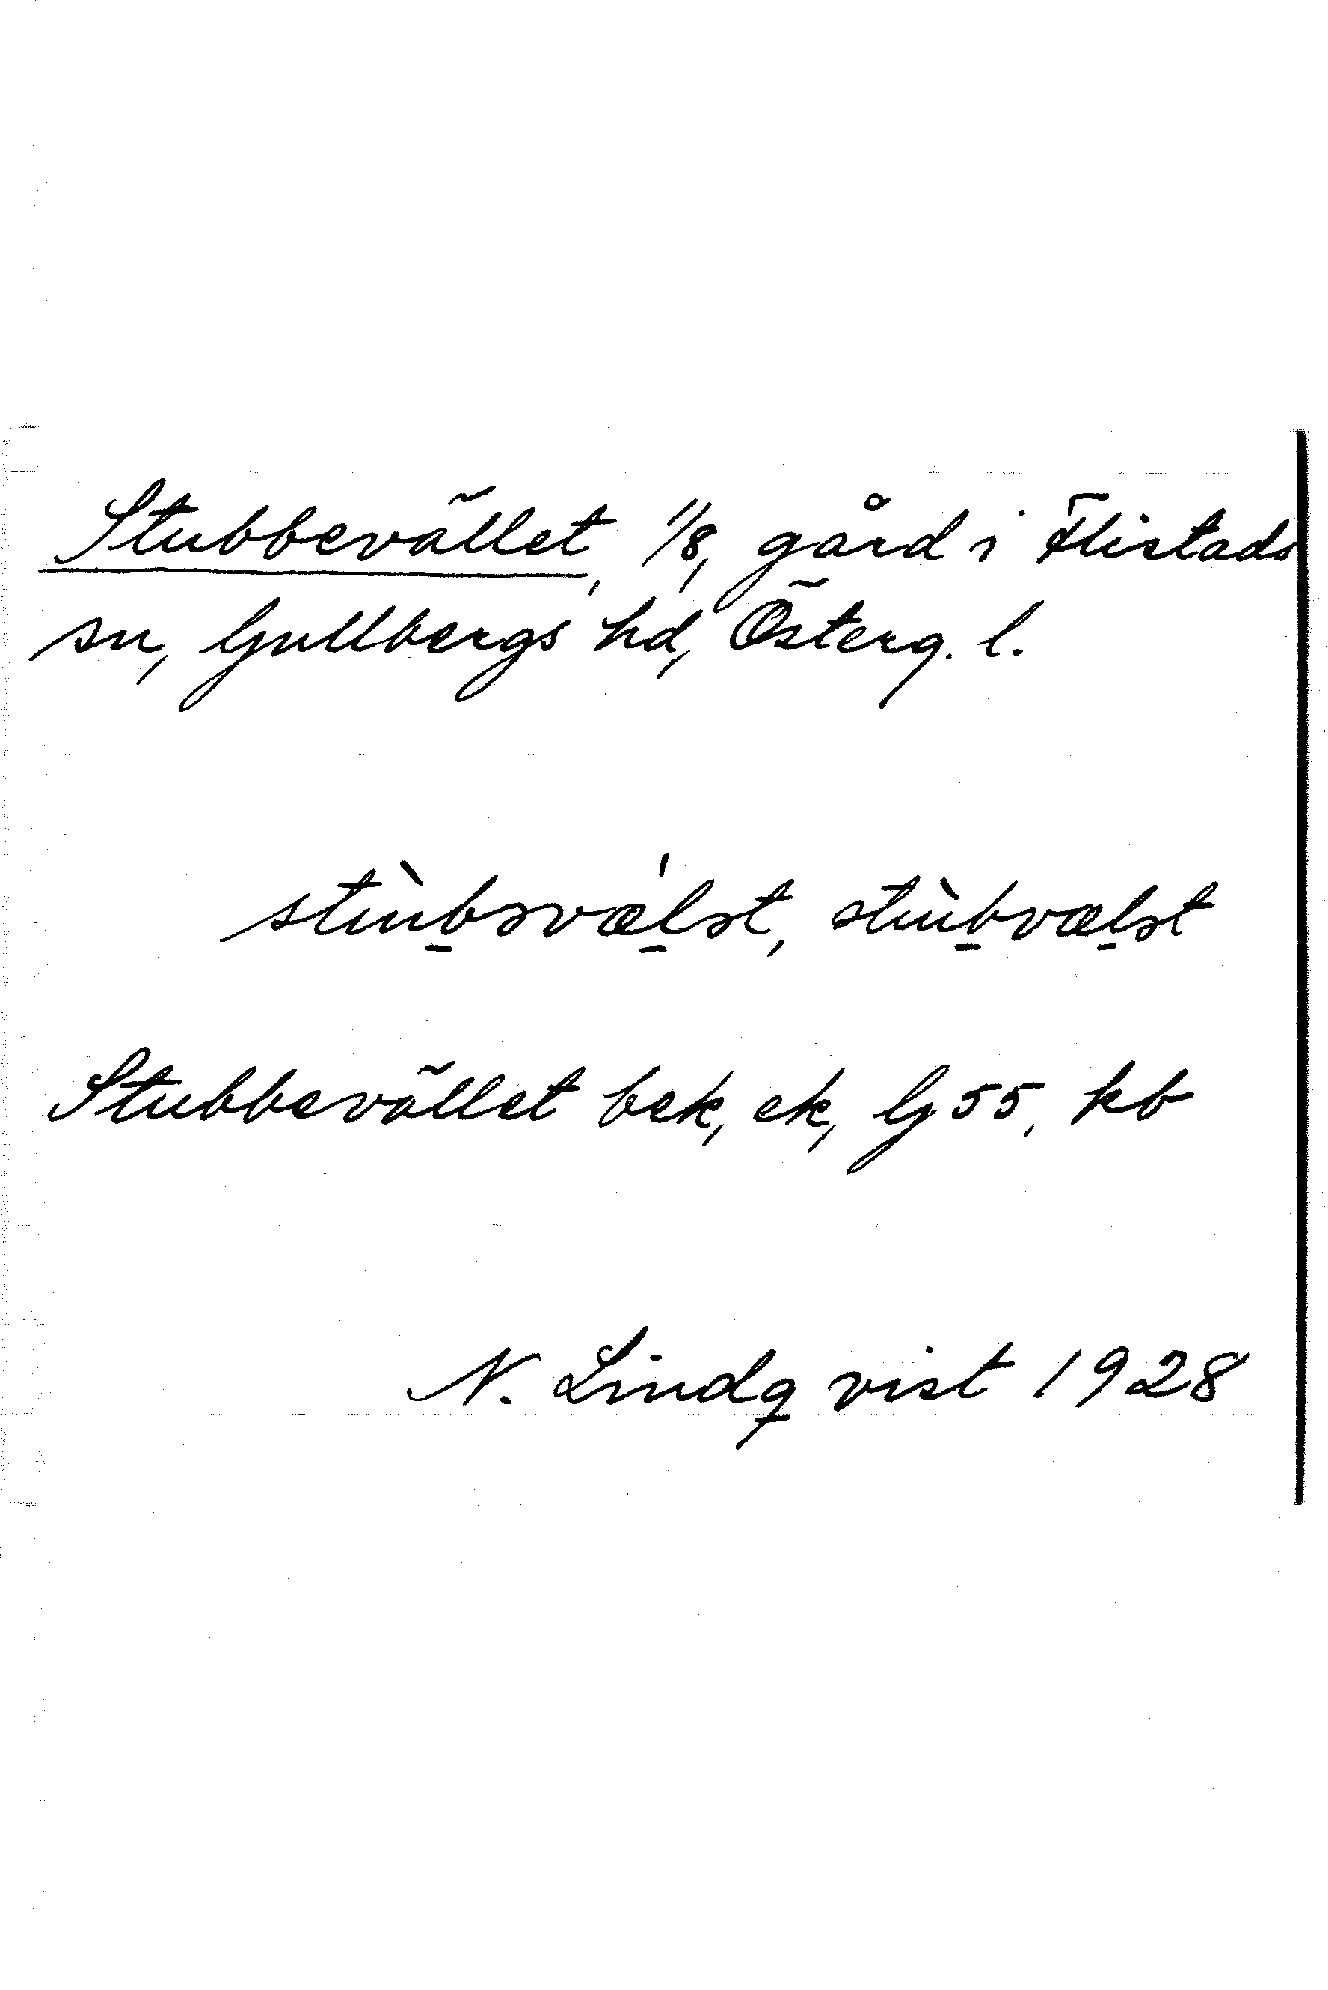 Stubbevället, 1/8, gård i Flistads
sn, Gullbergs hd, Österg. l.
stùb̲əvæ̍l̲ət, stùb̲væl̲ət
Stubbevället bek, ek, G 55, kb
N. Lindqvist 1928